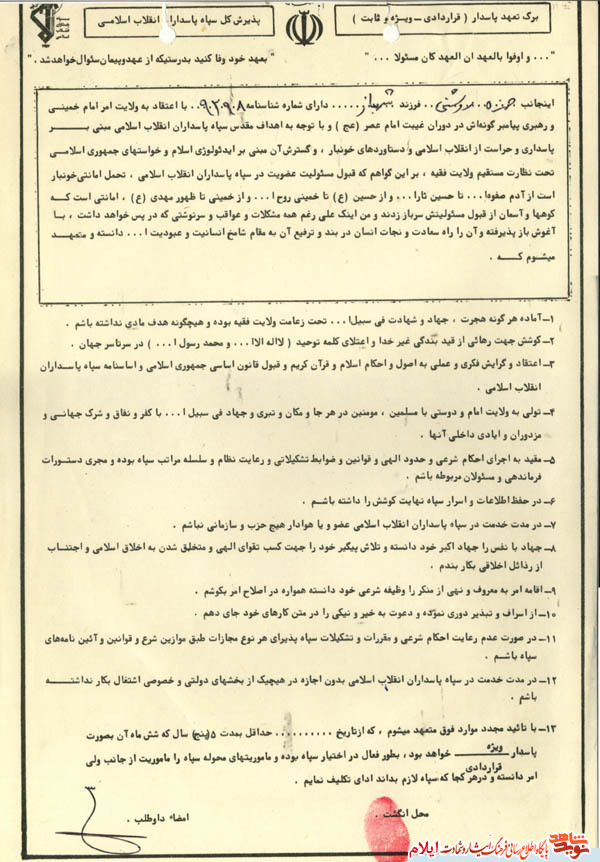 برگ تعهد پاسدار ( قراردادی ــ ویژه و ثابت )
پذیرش کل سپاه پاسداران انقلاب اسلامی
" ... و اوفوا بالعهد ان العهد کان مسئولا ... "
" بعهد خود وفا کنید بدرستیکه از عهد و پیمان سئوال خواهد شد . "
اینجانب حمزه مروشتی فرزند شهباز دارای شماره شناسنامه با اعتقاد به ولایت امر امام خمینی
و رهبری پیامبر گونه‌اش در دوران غیبت امام عصر (عج ) و با توجه به اهداف مقدس سپاه پاسداران انقلاب اسلامی مبنی بر
پاسداری و حراست از انقلاب اسلامی و دستاوردهای خونبار ، و گسترش آن مبنی بر ایدئولوژی اسلام و خواستهای جمهوری اسلامی
تحت نظارت مستقیم ولایت فقیه ، بر این گواهم که قبول مسئولیت عضویت در سپاه پاسداران انقلاب اسلامی ، تحمل امانتی خونبار
است از آدم صفوه‌ا ... تا حسین ثارا ... و از حسین (ع) تا خمینی روح ا ... و از خمینی تا ظهور مهدی (ع) ، امانتی است که
کوهها و آسمان از قبول مسئولیتش سرباز زدند و من اینک علی رغم همه مشکلات و عواقب و سرنوشتی که در پس خواهد داشت ، با
آغوش باز پذیرفته و آن را راه سعادت و نجات انسان در بند و ترفیع آن به مقام شامخ انسانیت و عبودیت ا ... دانسته و متعهد
میشوم که .
۱ــ آماده هر گونه هجرت ، جهاد و شهادت فی سبیل‌ا ... تحت زعامت ولایت فقیه بوده و هیچگونه هدف مادی نداشته باشم .
۲ــ کوشش جهت رهائی از قید بندگی غیر خدا و اعتلای کلمه توحید ( لااله الاا ... و محمد رسول ا ... ) در سرتاسر جهان .
۳ــ اعتقاد و گرایش فکری و عملی به اصول و احکام اسلام و قرآن کریم و قبول قانون اساسی جمهوری اسلامی و اساسنامه سپاه پاسداران
انقلاب اسلامی .
۴ــ تولی به ولایت امام و دوستی با مسلمین ، مومنین در هر جا و مکان و تبری و جهاد فی سبیل ا ... با کفر و نفاق و شرک جهانی و
مزدوران و ایادی داخلی آنها .
۵ــ مقید به اجرای احکام شرعی و حدود الهی و قوانین و ضوابط تشکیلاتی و رعایت نظام و سلسله مراتب سپاه بوده و مجری دستورات
فرماندهی و مسئولان مربوطه باشم .
۶ــ در حفظ اطلاعات و اسرار سپاه نهایت کوشش را داشته باشم .
۷ــ در مدت خدمت در سپاه پاسداران انقلاب اسلامی عضو و یا هوادار هیچ حزب و سازمانی نباشم .
۸ــ جهاد با نفس را جهاد اکبر خود دانسته و تلاش پیگیر خود را جهت کسب تقوای الهی و متخلق شدن به اخلاق اسلامی و اجتناب
از رذائل اخلاقی بکار بندم .
۹ــ اقامه امر به معروف و نهی از منکر را وظیفه شرعی خود دانسته همواره در اصلاح امر بکوشم .
۱۰ــ از اسراف و تبذیر دوری نموده و دعوت به خیر و نیکی را در متن کارهای خود جای دهم .
۱۱ــ در صورت عدم رعایت احکام شرعی و مقررات و تشکیلات سپاه پذیرای هر نوع مجازات طبق موازین شرع و قوانین و آئین نامه‌های
سپاه باشم .
۱۲ــ در مدت خدمت در سپاه پاسداران انقلاب اسلامی بدون اجازه در هیچیک از بخشهای دولتی و خصوصی اشتغال بکار نداشته
باشم .
۱۳ــ با تائید مجدد موارد فوق متعهد میشوم ، که از تاریخ .......... حداقل بمدت ۵ (پنج) سال که شش ماه آن بصورت
پاسدار ویژه قراردادی خواهد بود ، بطور فعال در اختیار سپاه بوده و ماموریتهای محوله سپاه را ماموریت از جانب ولی
امر دانسته و در هر کجا که سپاه لازم بداند ادای تکلیف نمایم .
محل انگشت .
امضاء داوطلب .
نوید شاهد
پایگاه اطلاع رسانی فرهنگ ایثار و شهادت ایلام